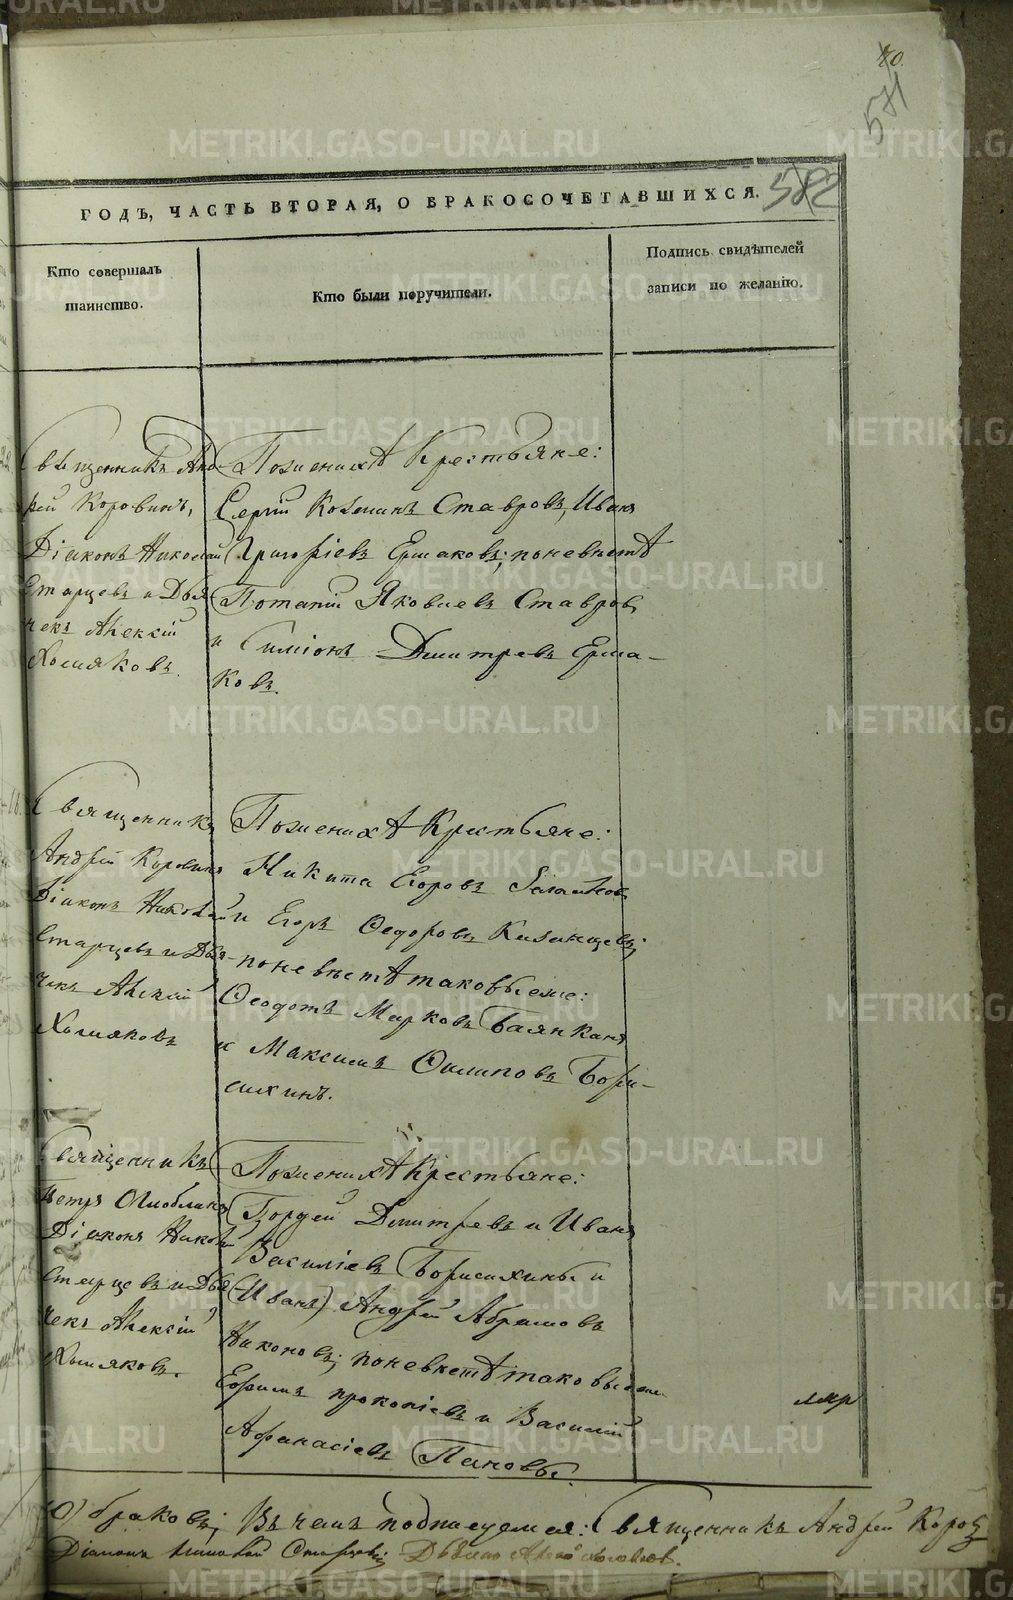 581
582
ГОДЪ, ЧАСТЬ ВТОРАЯ, О БРАКОСОЧЕТАВШИХСЯ.
Кто совершалъ
таинство.
Кто были поручители.
Подпись свидѣтелей
записи по желанію.
Священникъ Анд-
рей Коровинъ,
Діаконъ Николай
Старцевъ и Дья-
чекъ Алексій
Хомяковъ.
По женихѣ Крестьяне:
Сергій Козминъ Ставровъ, Иванъ
Григорьевъ Ермаковъ; по невѣстѣ
Потапій Яковлевъ Ставровъ
и Симіонъ Дмитревъ Ерма-
ковъ.
Священникъ
Андрей Коровинъ
Діаконъ Николай
Старцевъ и Дья-
чекъ Алексій
Хомяковъ
По женихѣ Крестьяне:
Никита Егоровъ
и Егоръ Федоровъ Казанцевъ;
по невѣстѣ таковые же:
Феодотъ Марковъ Баянкинъ
и Максимъ Филиповъ Бори-
сихинъ.
Священникъ
Петръ Оглоблинъ
Діаконъ Николай
Старцевъ и Дья-
чекъ Алексій
Хомяковъ.
По женихѣ Крестьяне:
Гордей Дмитревъ и Иванъ
Василіевъ Борисихины и
(Иванъ) Андрей Абрамовъ
Никоновъ; по невѣстѣ таковые же
Ефимъ Прокопіевъ и Василій
Афанасіевъ Пановы.
(О) браковъ; Въ чемъ подписуемся: Священникъ Андрей Коров
Діаконъ Николай Старцевъ Дьячекъ Алексій Хомяковъ.
METRIKI.GASO-URAL.RU